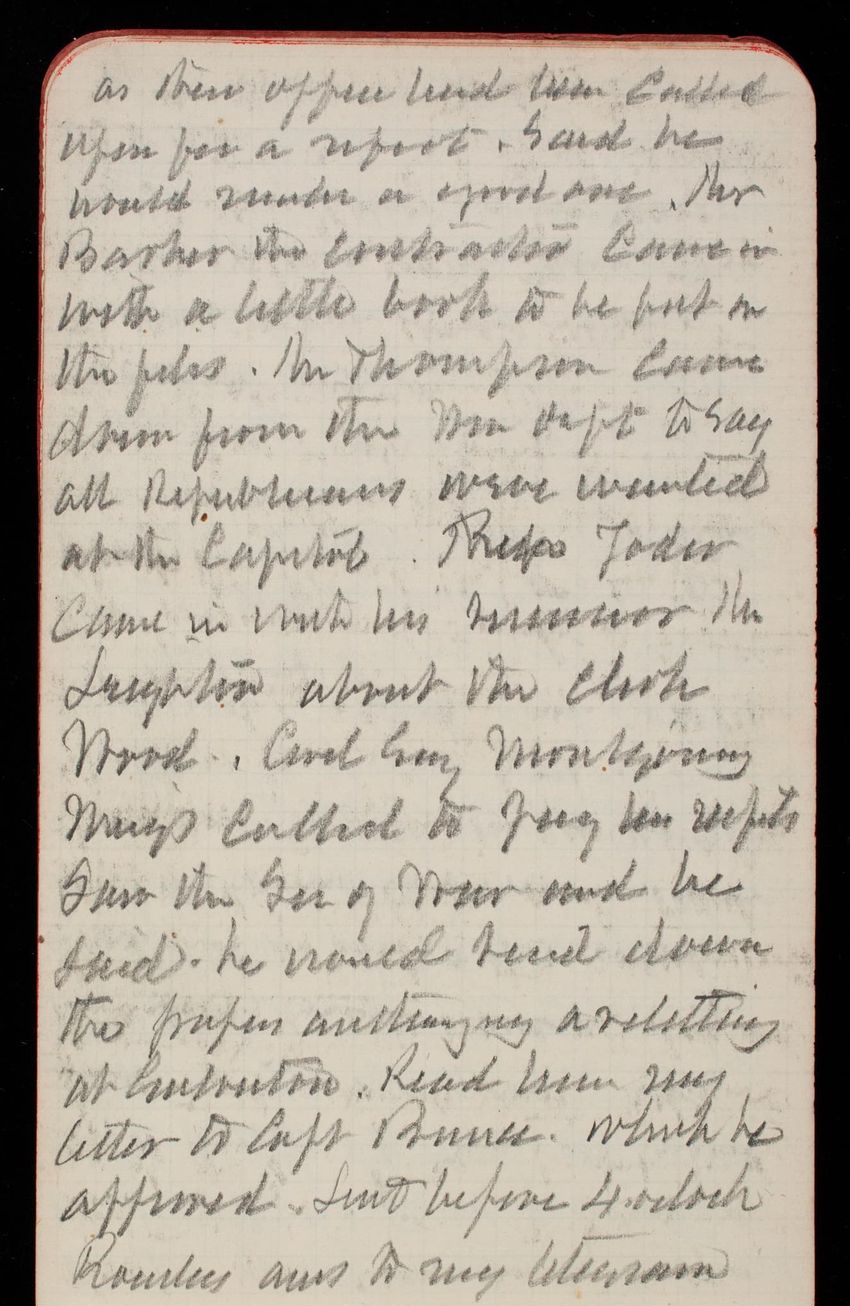 as their office had him called
upon for a report. Said he
would render a good one. Mr
Barker the contractor came in
with a little book to be put on
the files. Mr Thompson came
down from the War dept to say
all Republicans were wanted
at the Capitol. Yoder
came in with his Mr
about the clerk
Wood. Genl Montgomery
Meigs called to
Saw the Sec of War and he
said he would send down
the paper a reletting
at . Read him my
letter to Capt which he
approved. Sent before 4 oclock
ans to my telegram